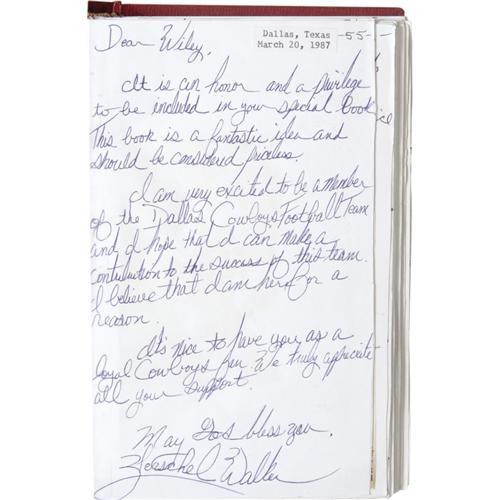 Dallas, Texas -55-
March 20, 1987
Dear Wiley,
It is an honor and a privilege
to be included in your special book
This book is a fantastic idea and
should be considered priceless.
I am very excited to be a member
of the Dallas Cowboys Football Team
and I hope that I can make a
contribution to the success of this team.
I believe that I am here for a
reason.
It's nice to have you as a
loyal Cowboys fan. We truly appreciate
all your support.
May God bless you,
Herschel Walker